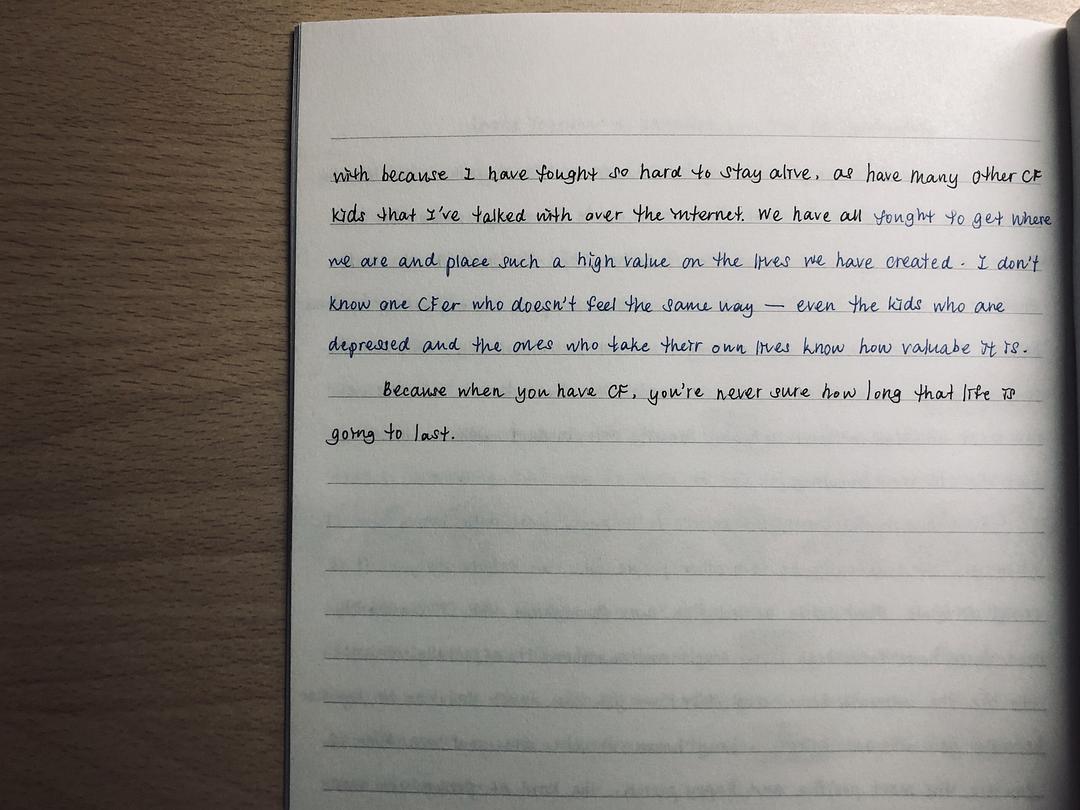 with because I have fought so hard to stay alive, as have many other CF
kids that I've talked with over the internet. We have all fought to get where
we are and place such a high value on the lives we have created. I don't
know one CFer who doesn't feel the same way — even the kids who are
depressed and the ones who take their own lives know how valuabe it is.
Because when you have CF, you're never sure how long that life is
going to last.